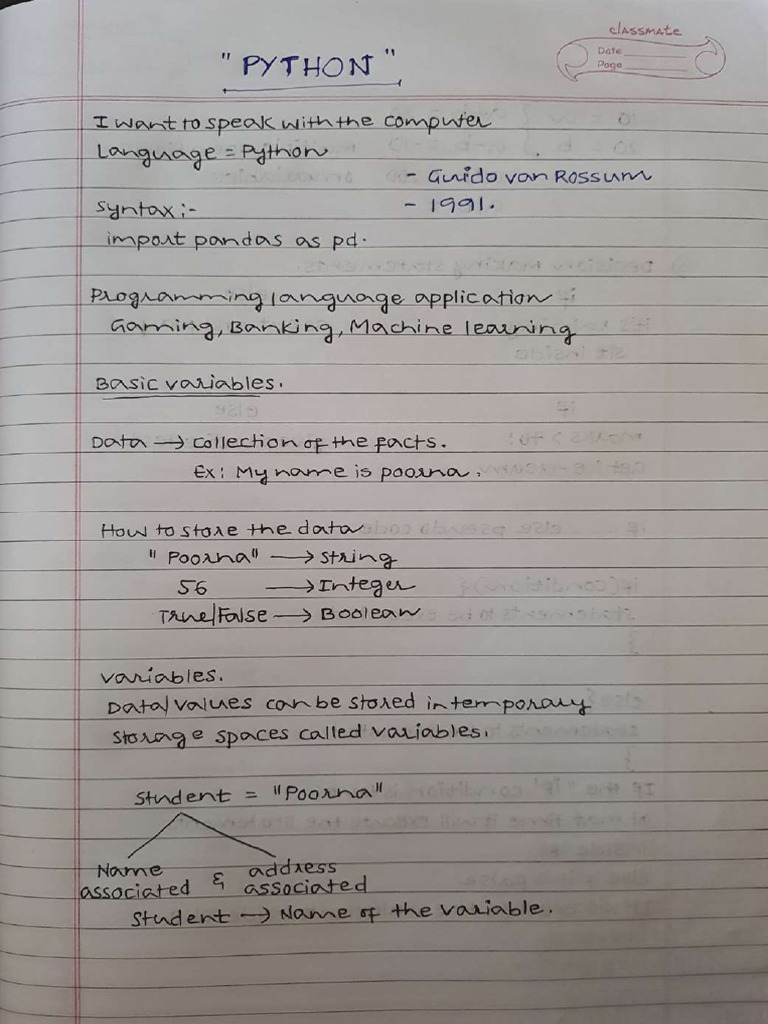 classmate
Date
Page
"PYTHON"
I want to speak with the computer
Language = Python
- Guido van Rossum
Syntax :-
- 1991.
import pandas as pd.
Programming language application
Gaming, Banking, Machine learning
Basic variables.
Data → collection of the facts.
Ex: My name is poorna.
How to store the data
"Poorna" → String
56 → Integer
True/False → Boolean
variables.
Data/values can be stored in temporary
storage spaces called variables.
Student = "Poorna"
Name associated & address associated
Student → Name of the variable.